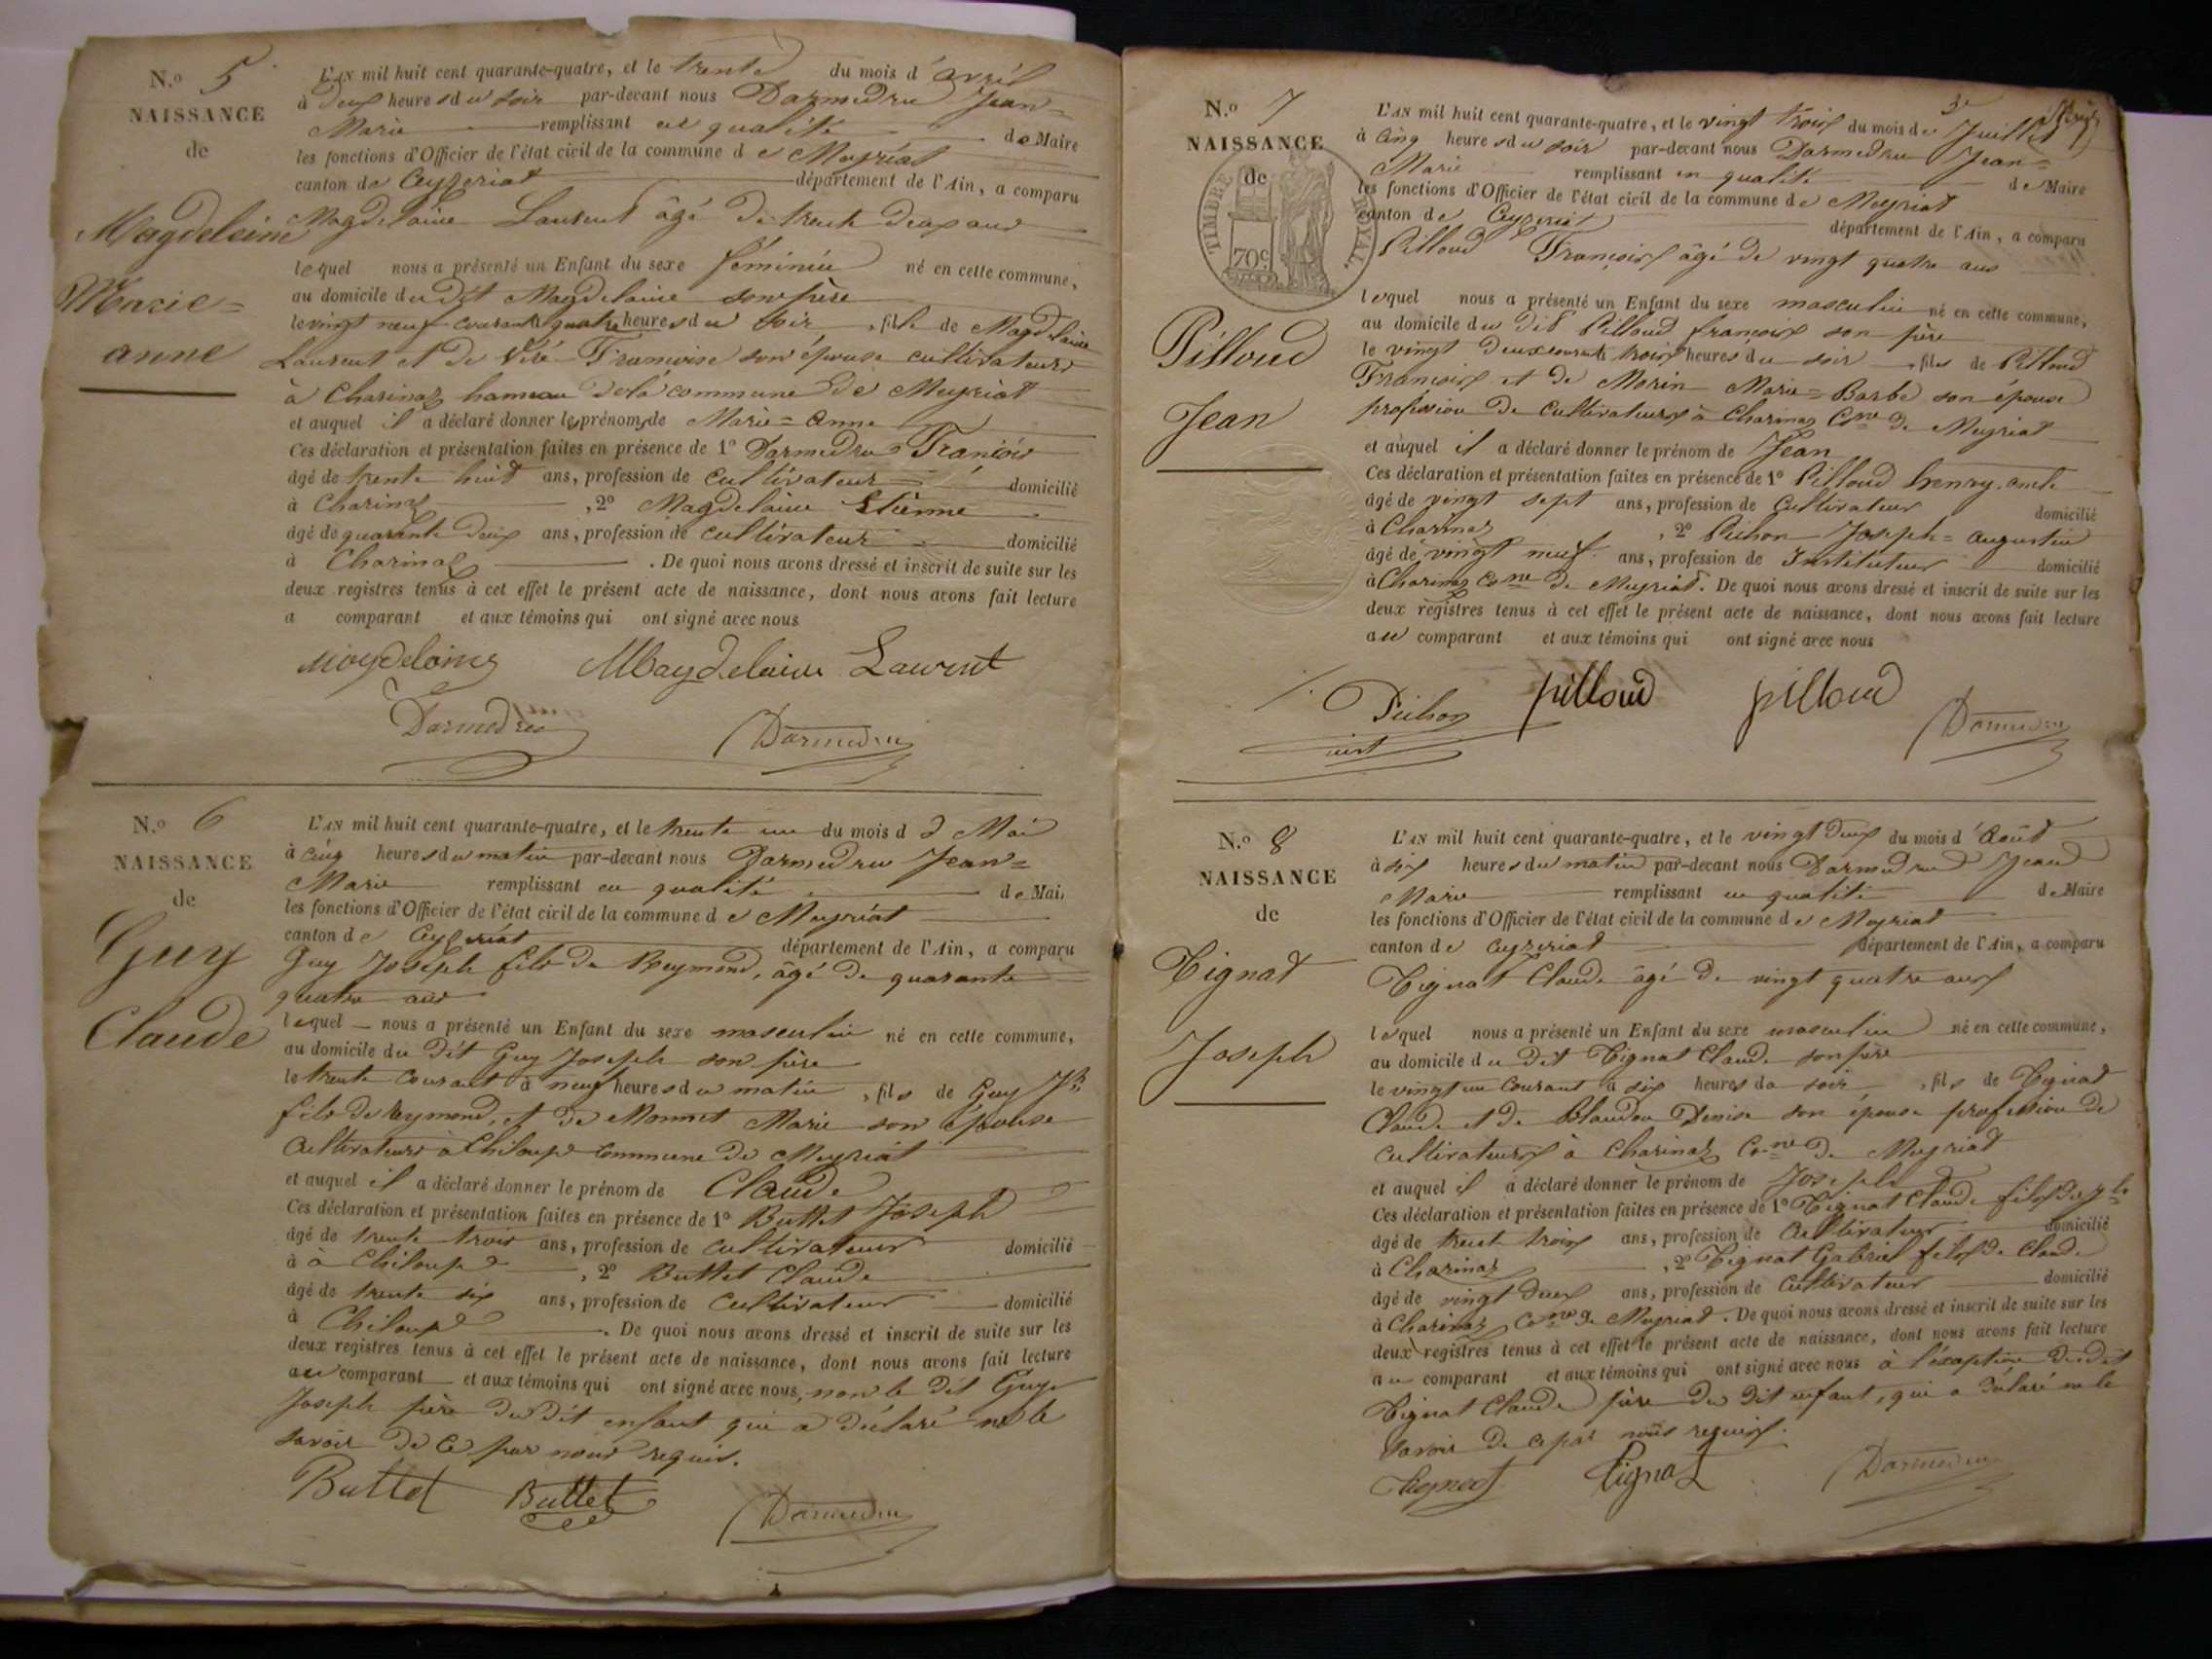 N.º 5
NAISSANCE
de
Magdeleine
Marie=
anne
L'AN mil huit cent quarante-quatre, et le trente du mois d'avril
à Deux heures du soir par-devant nous Darmedru Jean=
Marie remplissant en qualité de Maire
les fonctions d'Officier de l'état civil de la commune de Meyriat
canton de Ceyzeriat département de l'Ain, a comparu
Magdelaine Laurent âgé de trente deux ans
lequel nous a présenté un Enfant du sexe féminin né en cette commune,
au domicile du dit Magdelaine son père
le vingt neuf courant à quatre heures du soir, fille de Magdelaine
Laurent et de Françoise son épouse cultivateurs
à Charinaz hameau de la commune de Meyriat
et auquel il a déclaré donner les prénoms de Marie=anne
Ces déclaration et présentation faites en présence de 1º Darmedru François
âgé de trente huit ans, profession de cultivateur domicilié
à Charinaz, 2º Magdelaine Etienne
âgé de quarante deux ans, profession de cultivateur domicilié
à Charinaz. De quoi nous avons dressé et inscrit de suite sur les
deux registres tenus à cet effet le présent acte de naissance, dont nous avons fait lecture
a comparant et aux témoins qui ont signé avec nous
Magdelaine Laurent
Darmedru Darmedru
N.º 6
NAISSANCE
de
Guy
Claude
L'AN mil huit cent quarante-quatre, et le trente un du mois de Mai
à cinq heures du matin par-devant nous Darmedru Jean=
Marie remplissant en qualité de Mai.
les fonctions d'Officier de l'état civil de la commune de Meyriat
canton de Ceyzeriat département de l'Ain, a comparu
Guy Joseph fils de Reymond, âgé de quarante
quatre ans
lequel nous a présenté un Enfant du sexe masculin né en cette commune,
au domicile du dit Guy Joseph son père
le trente courant à neuf heures du matin, fils de Guy Jh
fils de reymond, et de Monnet Marie son épouse
Cultivateurs à Chiloup commune de Meyriat
et auquel il a déclaré donner le prénom de Claude
Ces déclaration et présentation faites en présence de 1º Buttet Joseph
âgé de trente trois ans, profession de cultivateur domicilié
à à Chiloup, 2º Buttet Claude
âgé de trente six ans, profession de cultivateur domicilié
à Chiloup. De quoi nous avons dressé et inscrit de suite sur les
deux registres tenus à cet effet le présent acte de naissance, dont nous avons fait lecture
au comparant et aux témoins qui ont signé avec nous, non le dit Guy
Joseph père du dit enfant qui a déclaré ne le
savoir de ce par nous requis.
Buttet Buttet Darmedru
N.º 7
NAISSANCE
de
TIMBRE ROYAL.
70c
Pilloud
Jean
L'AN mil huit cent quarante-quatre, et le vingt trois du mois de Juillet
à cinq heures du soir par-devant nous Darmedru Jean=
Marie remplissant en qualité de Maire
les fonctions d'Officier de l'état civil de la commune de Meyriat
canton de Ceyzeriat département de l'Ain, a comparu
Pilloud François âgé de vingt quatre ans
lequel nous a présenté un Enfant du sexe masculin né en cette commune,
au domicile du dit Pilloud françois son père
le vingt deux courant à trois heures du soir, fils de Pilloud
François et de Morin Marie=Barbe son épouse
profession de cultivateurs à Charinaz Cne de Meyriat
et auquel il a déclaré donner le prénom de Jean
Ces déclaration et présentation faites en présence de 1º Pilloud henry, oncle
âgé de vingt sept ans, profession de cultivateur domicilié
à Charinaz, 2º Pichon Joseph=augustin
âgé de vingt neuf ans, profession de Instituteur domicilié
à Charinaz Cone de Meyriat. De quoi nous avons dressé et inscrit de suite sur les
deux registres tenus à cet effet le présent acte de naissance, dont nous avons fait lecture
au comparant et aux témoins qui ont signé avec nous
Pichon pilloud pilloud Darmedru
inst
N.º 8
NAISSANCE
de
Tignat
Joseph
L'AN mil huit cent quarante-quatre, et le vingt deux du mois d'Août
à six heures du matin par-devant nous Darmedru Jean
Marie remplissant en qualité de Maire
les fonctions d'Officier de l'état civil de la commune de Meyriat
canton de Ceyzeriat département de l'Ain, a comparu
Tignat Claude âgé de vingt quatre ans
lequel nous a présenté un Enfant du sexe masculin né en cette commune,
au domicile du dit Tignat Claude son père
le vingt un courant à six heures du soir, fils de Tignat
Claude et de Blandon Denise son épouse profession de
cultivateurs à Charinaz Cone de Meyriat
et auquel il a déclaré donner le prénom de Joseph
Ces déclaration et présentation faites en présence de 1º Tignat Claude fils de
âgé de trente trois ans, profession de cultivateur domicilié
à Charinaz, 2º Tignat Gabriel fils de Claude
âgé de vingt deux ans, profession de cultivateur domicilié
à Charinaz Cone de Meyriat. De quoi nous avons dressé et inscrit de suite sur les
deux registres tenus à cet effet le présent acte de naissance, dont nous avons fait lecture
au comparant et aux témoins qui ont signé avec nous à l'exception du dit
Tignat Claude père du dit enfant, qui a déclaré ne le
savoir de ce par nous requis.
Tignat Tignat Darmedru